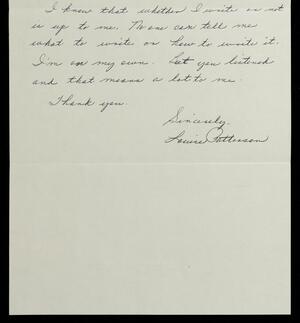 I know that whether I write or not
is up to me. No one can tell me
what to write or how to write it.
I'm on my own. But you listened
and that means a lot to me.
Thank you.
Sincerely,
Louise Patterson